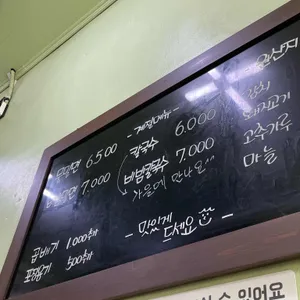 - 계절메뉴 -
칼국수 6.000
비빔칼국수 7.000
가을에 만나요
6.500
7.000
곱빼기 1000추가
포장용기 500추가
- 맛있게 드세요 -
원산지
김치
돼지고기
고추가루
마늘